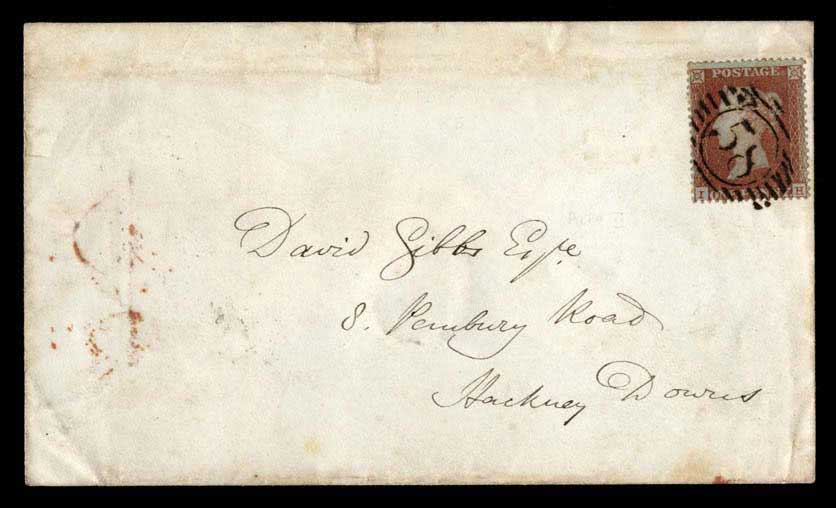 POSTAGE
58
I H
David Gibbs Esqre
8. Pembury Road
Hackney Downs